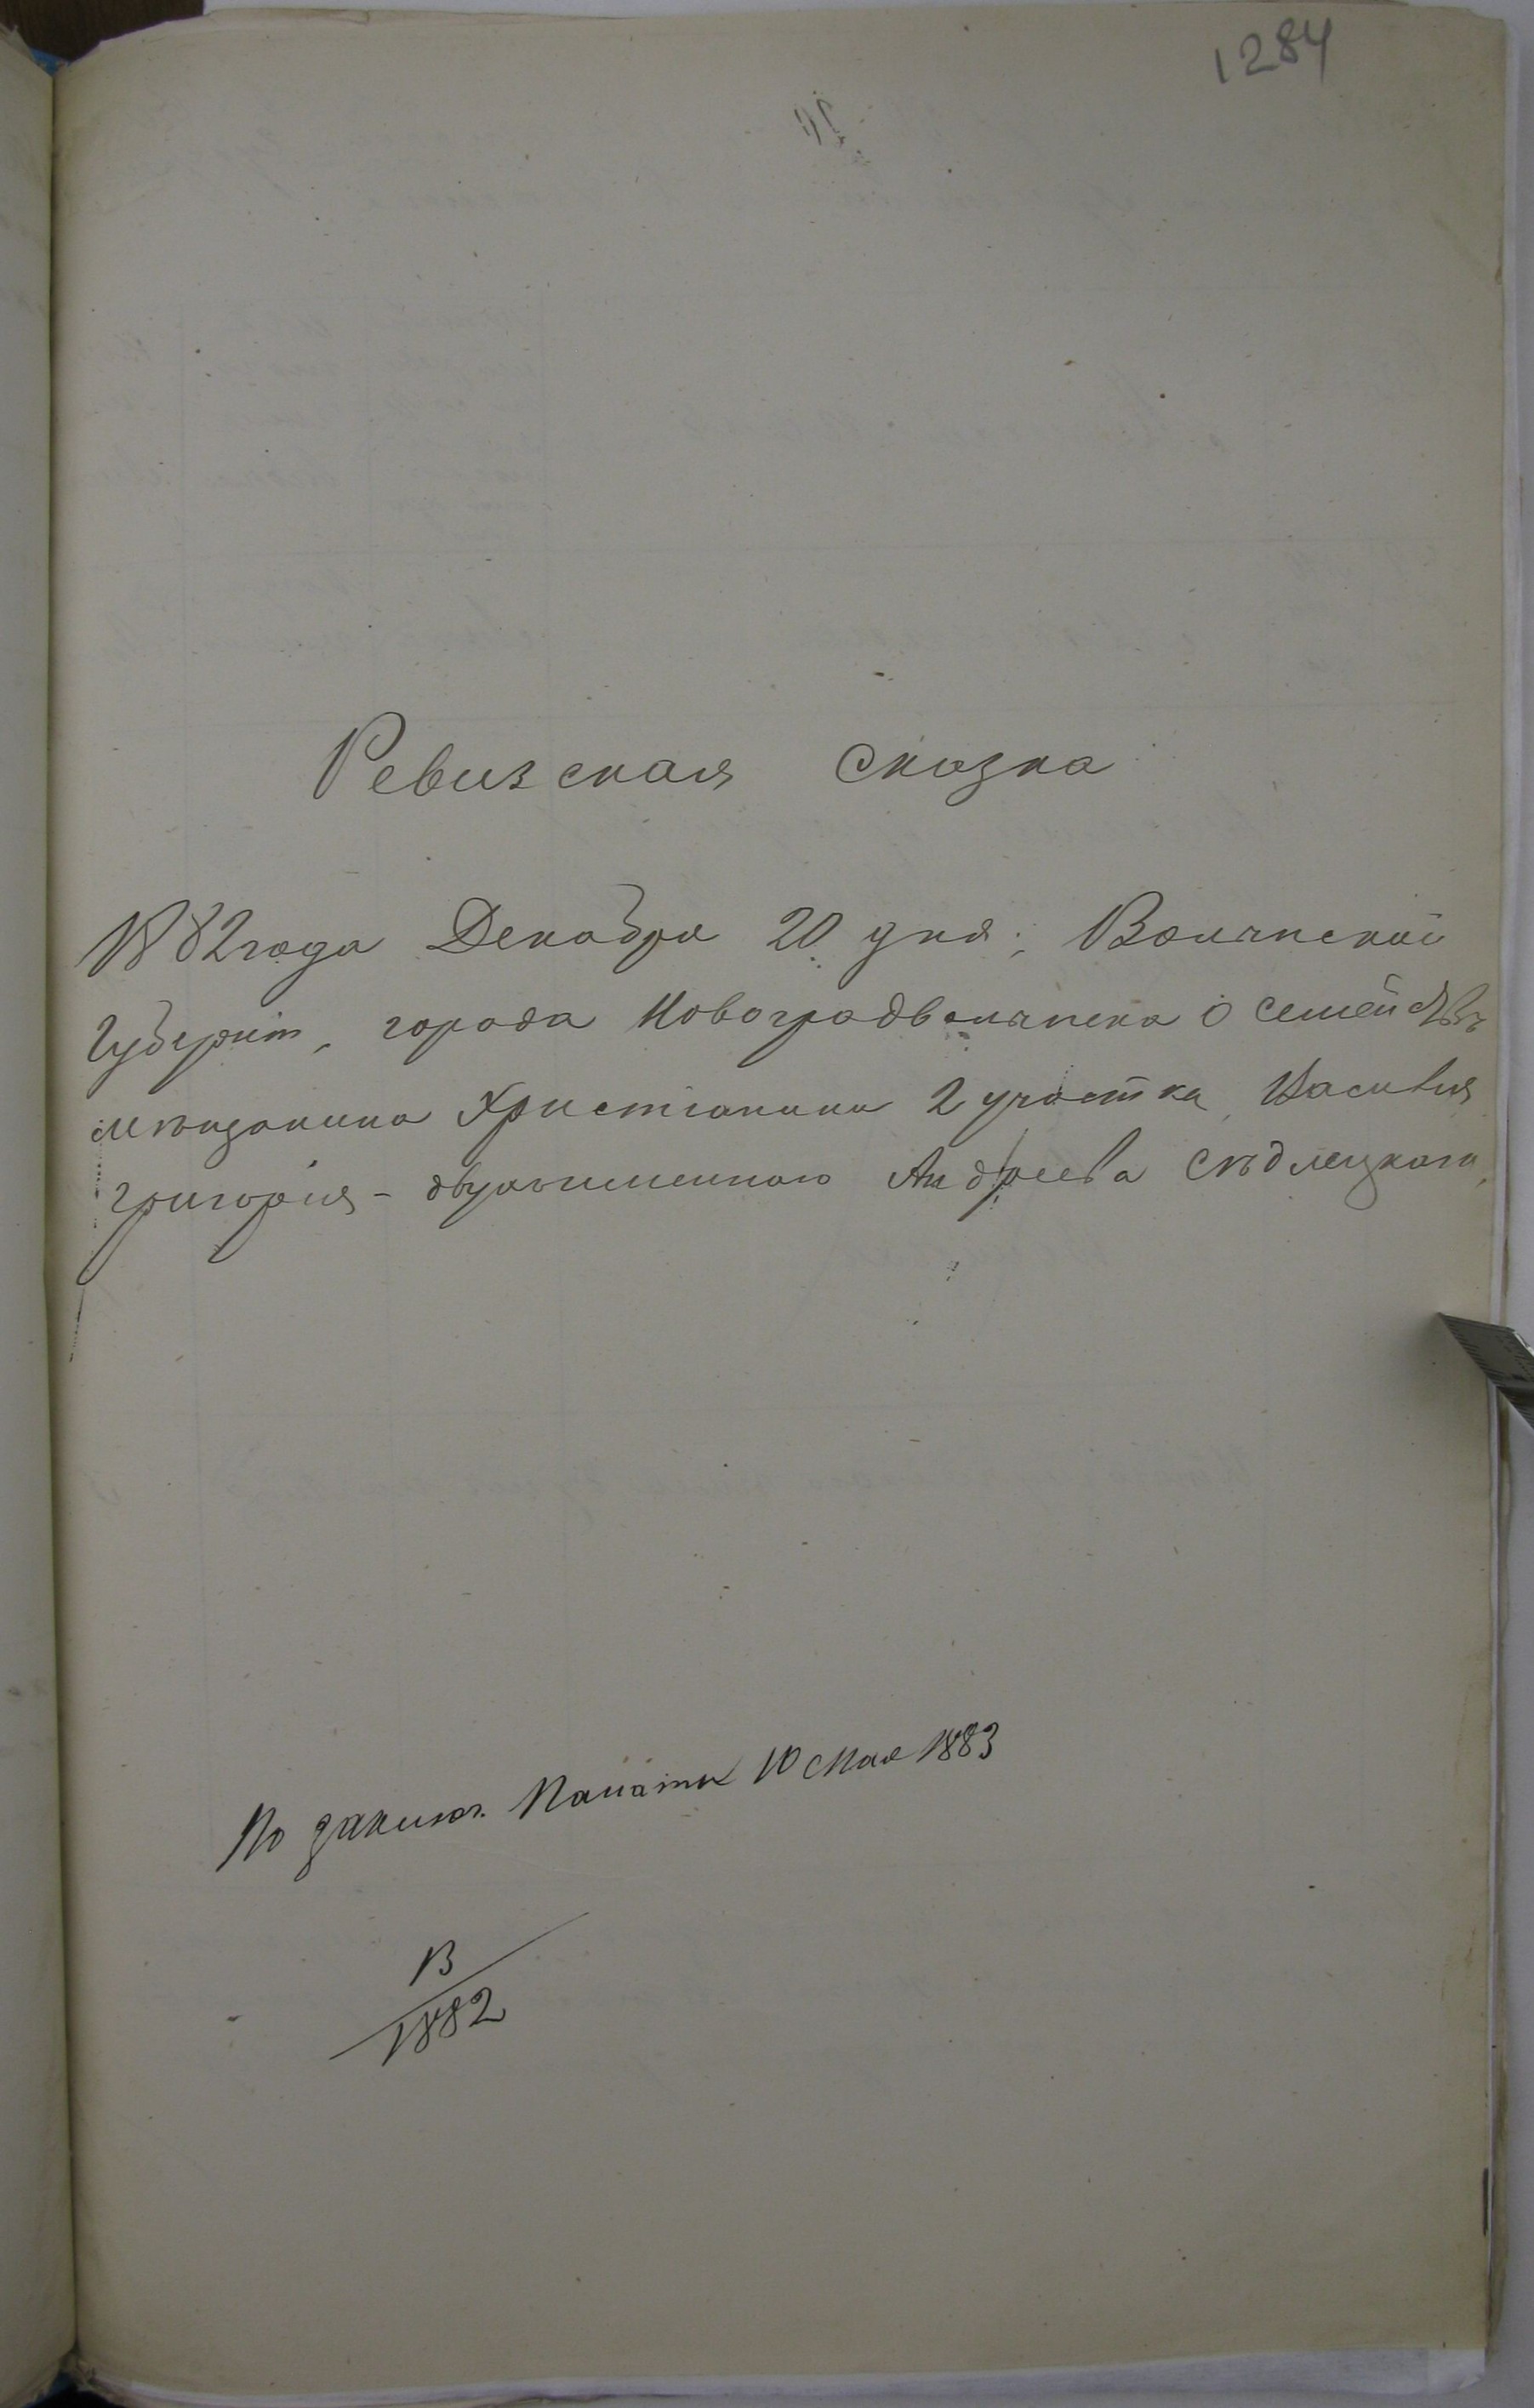 1284
Ревизская сказка
1882 года Декабря 20 дня; Волынской
Губерніи, города Новоградволынска о семействѣ
мѣщанина Христіанина 2 участка, Василія
Григорія - двухъименного Андреева Сѣдлецкого,
По заключ. Палаты 10 Мая 1883
13
1882